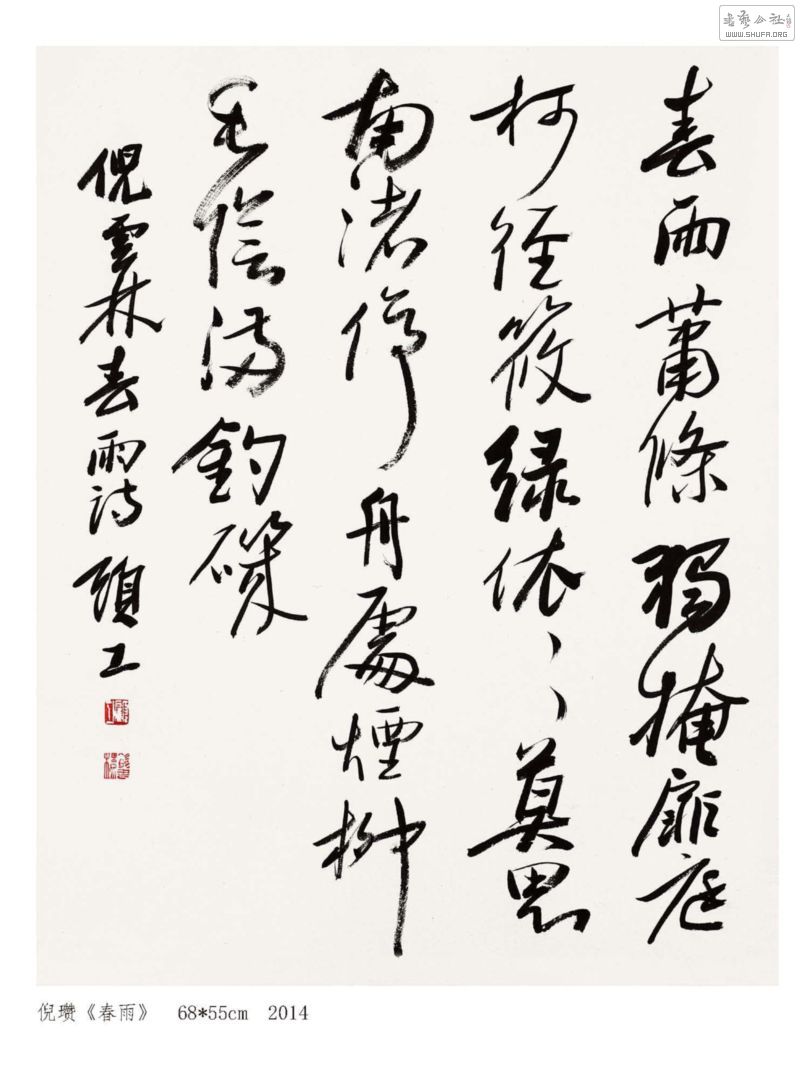 書藝公社
WWW.SHUFA.ORG
春雨蕭條獨掩扉庭
柯徑筱綠依丶丶莫思
南渚停舟處煙柳
垂陰滿釣磯
倪雲林春雨詩 顧工
倪瓒《春雨》 68*55cm 2014